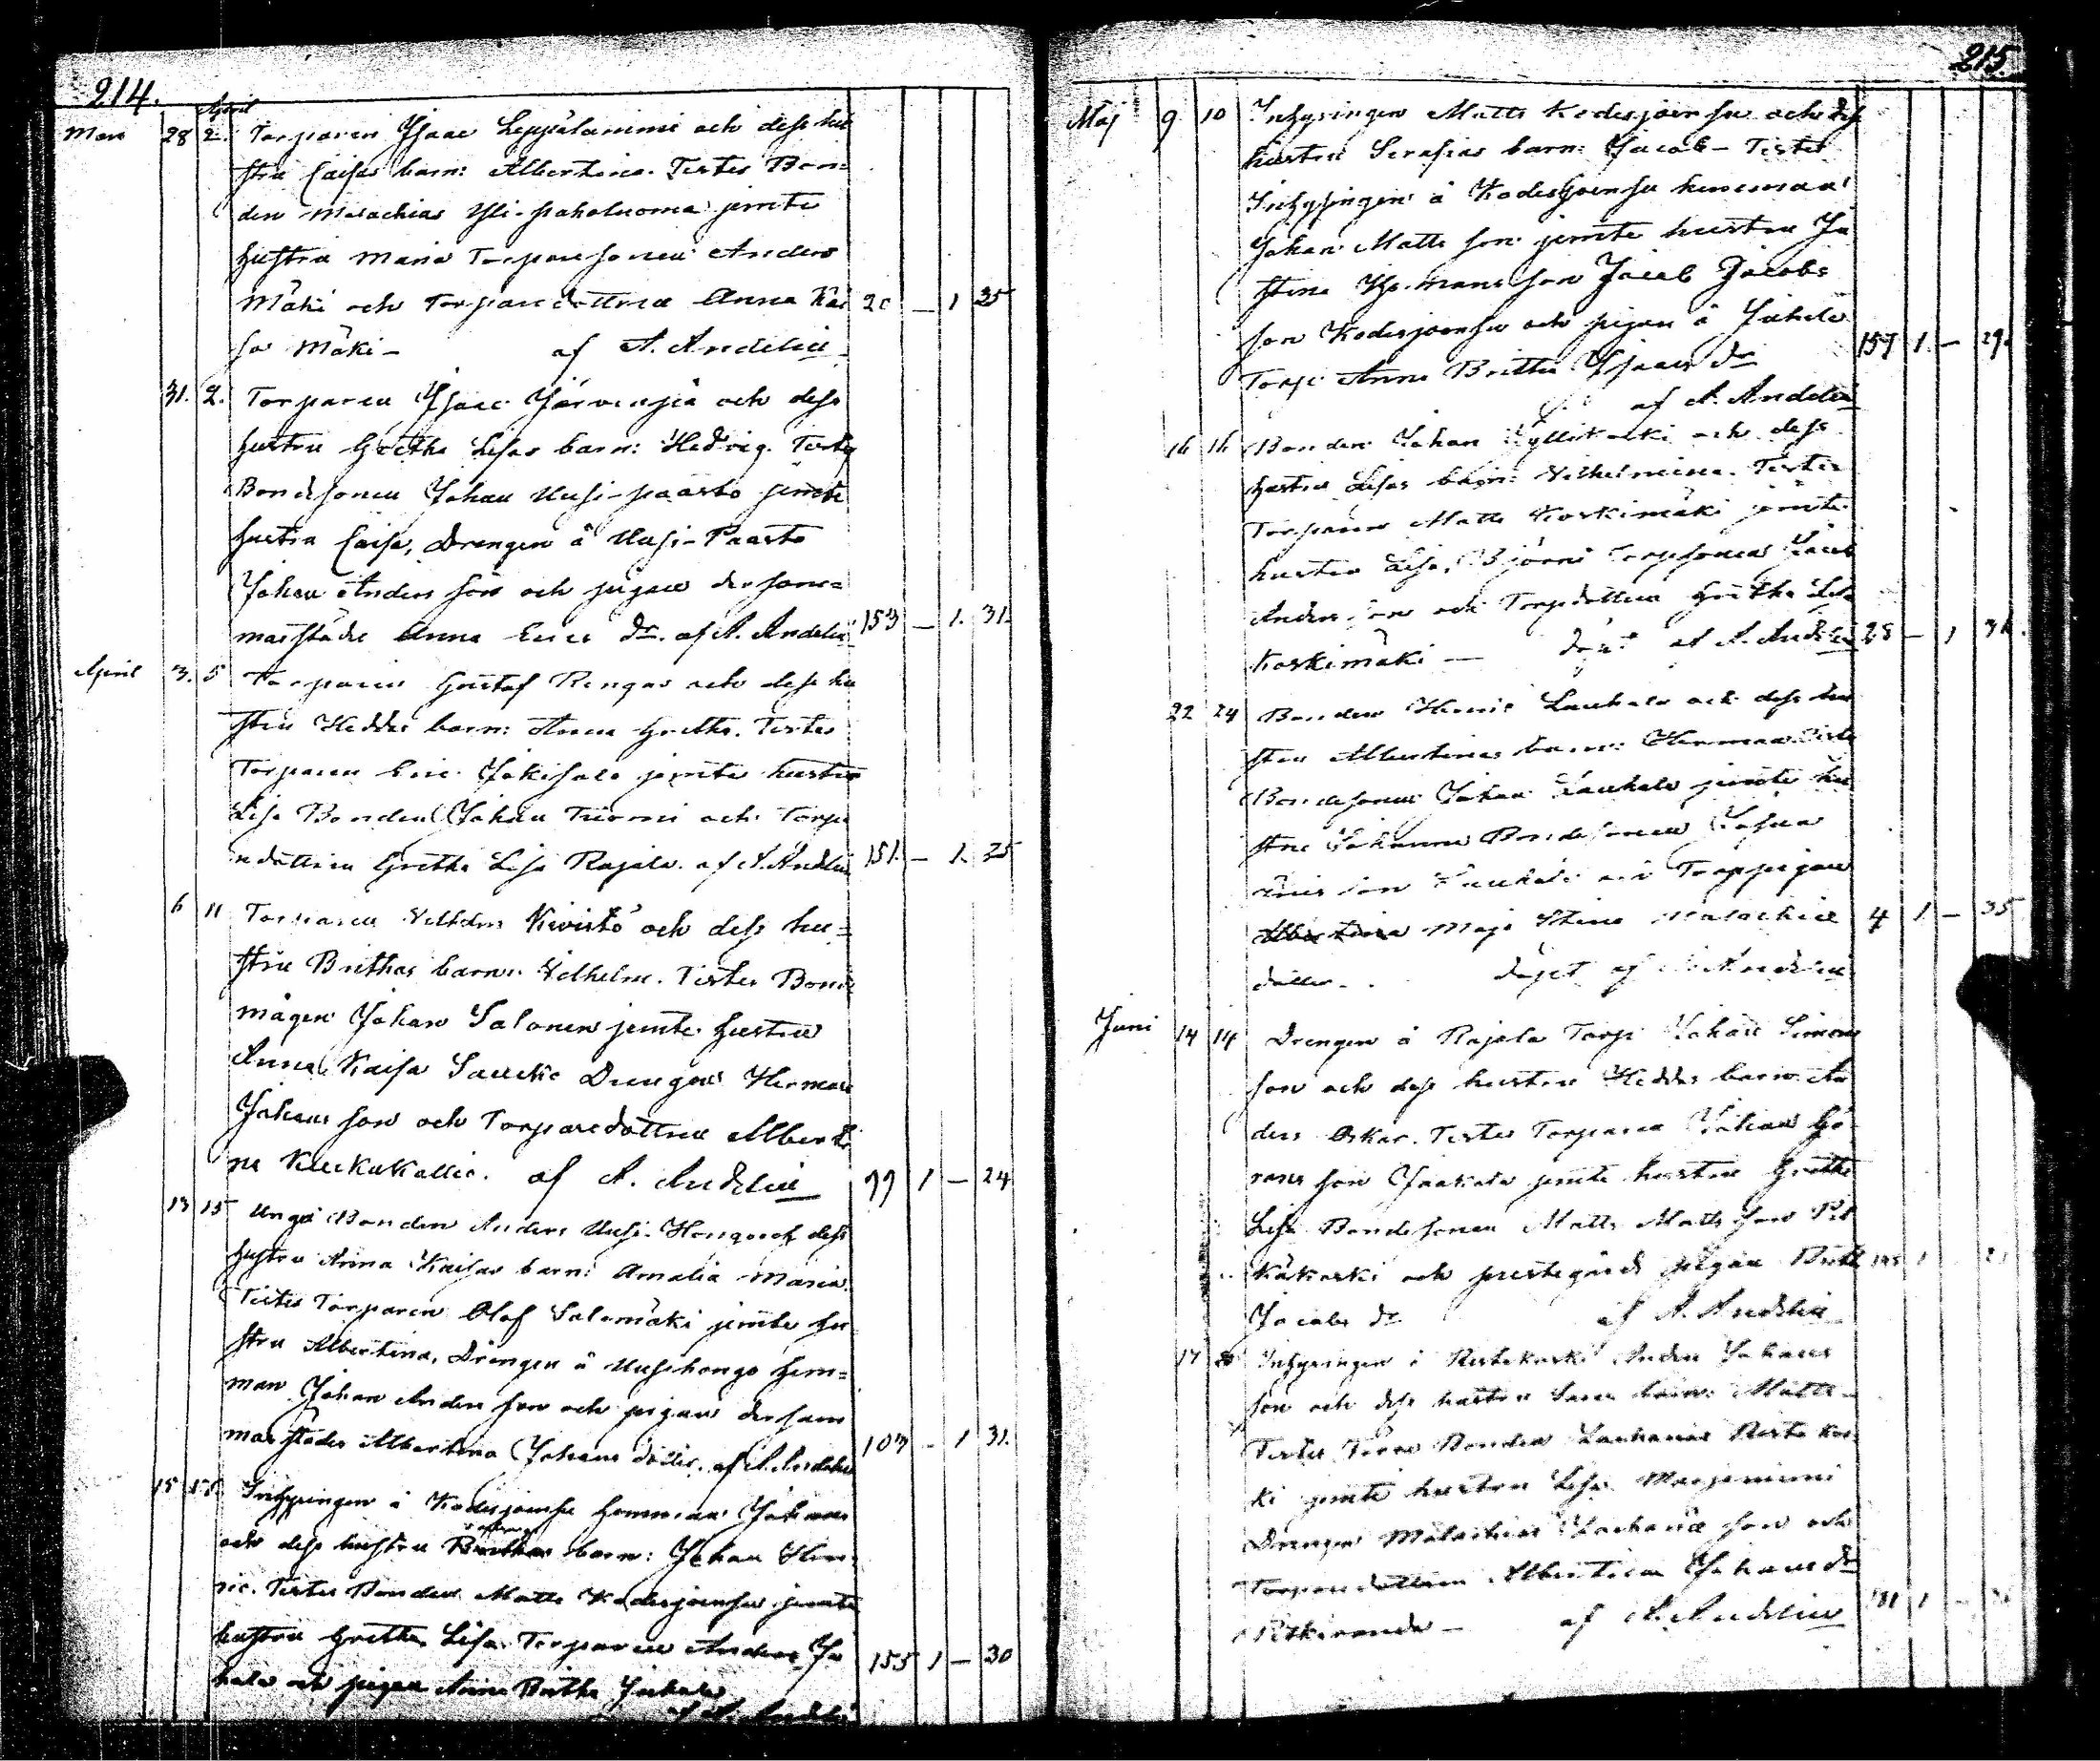 214.
April
Mars 28 2. Torparen Isaac Leppälammi och dess hu
stru Caisas barn: Albertina. Testes Bon=
den Malachias Yli-pahaluoma jemte
hustru Maria Torparesonen Anders
Mäki och Torparedottren Anna Kai 20 — 1 35
sa Mäki — af A. Andelin
31. 2. Torparen Isaac Järvenpä och dess
hustru Gretha Lisas barn: Hedvig. Testes
Bondsonen Johan Uusi-paasto jemte
hustru Caisa, Drengen å Uusi-Paasto
Johan Anders son och pigan dersam=
mastädes Anna Erics dr. af A. Andelin 153 — 1. 31.
April 3. 5 Torparen Gustaf Rengas och dess hu
stru Heddas barn: Anna Gretha. Testes
Torparen Eric Jokisalo jemte hustru
Lisa Bonden Johan Tuomi och Torpa
redottren Gretha Lisa Rajala. af A. Andelin 151. — 1. 25
6 11 Torparen Vilhelm Kivistö och dess hu=
stru Brithas barn: Vilhelm. Testes Bond
mågen Johan Salonen jemte hustru
Anna Kaisa Drengen Herman
Johans son och Torparedottren Alberti
na Kuckukallio. af A. Andelin 99 1 — 24
13 15 Unga Bonden Anders Uusi-Hongo och dess
hustru Anna Kaisas barn: Amalia Maria.
Testes Torparen Olof Salomäki jemte hu
stru Albertina, Drengen å Uusihongo hem=
man Johan Anders son och pigan dersam
mastädes Albertina Johans dotter. af A. Andelin 103 — 1 31.
15 Inhysingen å Kodesjoensu hemman Johan
och dess hustru barn: Johan Hen
ric. Testes Bonden Matts Kodesjoensu jemte
hustru Gretha Lisa Torparen Anders Ja 155 1 — 30
kala och pigan Anna Britha Jakala
af A. Andelin
215.
Maj 9 10 Inhysingen Matts Kodesjoensu och dess
hustru Serafias barn: Jacob — Testes
Inhysingen å Kodesjoensu hemman
Johan Matts son jemte hustru Ju
stina son Jacob Jacobs
son Kodesjoensu och pigan å Jakala
Torp Anna Britha Isaacs dr 157 1. — 29.
af A. Andelin
16 16 Bonden Johan Kyllikoski och dess
hustru Lisas barn: Vilhelmina. Testes
Torparen Matts Koskimäki jemte
hustru Lisa, Björni Torpsonen Jacob
Anders son och Torpdottren Gretha Lisa
Koskimäki — döpt af A. Andelin 28 — 1 36.
22 24 Bonden Henric Lauhala och dess hu
stru Albertinas barn: Herman. Testes
Bondesonen Johan Lauhala jemte hu
stru Johanna Bondesonen Josua
son Lauhala och Torppigan
Maja Stina Malachias 4 1 — 35
dotter. döpt af A. Andelin
Juni 14 14 Drengen å Rajala Torp Johan Simons
son och dess hustru Heddas barn: An
ders Oskar. Testes Torparen Johan Gö
rans son Jaakola jemte hustru Gretha
Lisa Bondesonen Matts Matts son Pit
käkoski och prestegårds pigan Brita 1
Jacobs dr af A. Andelin
17 Inhysingen i Ristikoski Anders Johans
son och dess hustru Saras barn: Matts —
Testes Bonden Zacharias Risto kos=
ki jemte hustru Lisa Marjaniemi
Drengen Malachias Zacharias son och
Torparedottren Albertina Johans dr
Pitkäranda — af A. Andelin 181 1 —